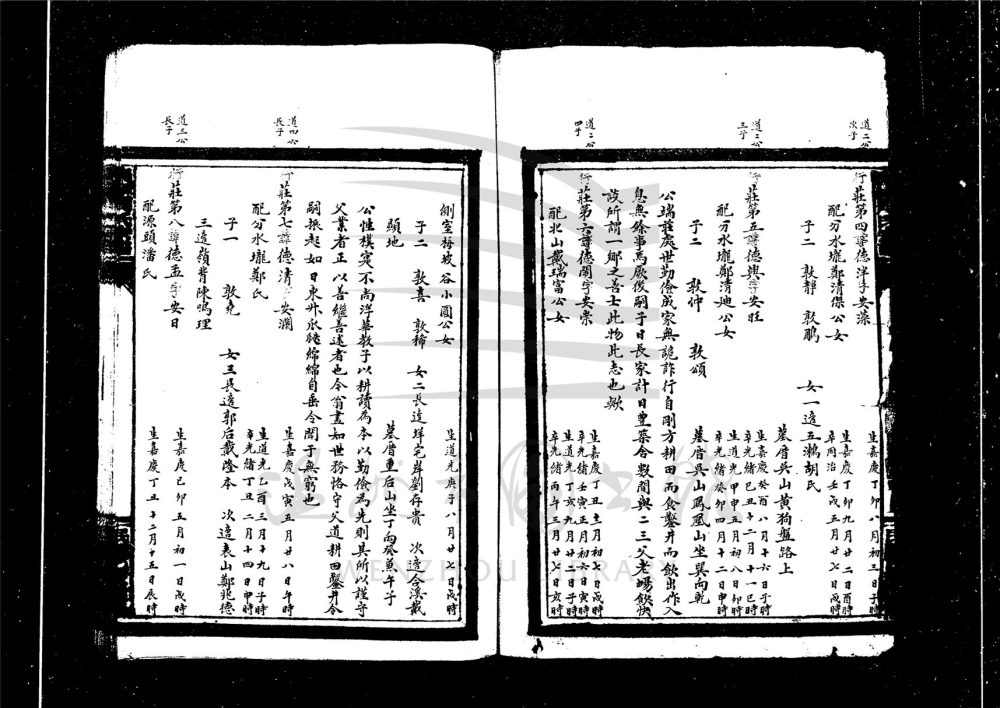 道二公次子
行莊第四諱德洋字安藻
生嘉慶丁卯八月初三日子時
配分水壠鄭清傑公女
生嘉慶丁卯九月廿二日酉時
卒同治壬戌五月廿八日戌時
子二 敦靜 敦鵬 女一適五鳷胡氏
墓厝吳山黃狗盤路上
道二公三子
行莊第五諱德輿字安旺
生嘉慶癸酉八月十六日子時
卒光緒己丑十二月十一日巳時
配分水壠鄭清迪公女
生道光甲申五月初八日卯時
卒光緒癸卯四月十二日申時
子二 敦仲 敦頌
墓厝吳山鳳凰山坐巽向乾
公端莊處世勤儉成家無詭詐行自剛方耕田而食鑿井而飲出作入
息無餘事焉厥後嗣子日長家計日豐築舍數間與二三父老暢飲快
談所謂一鄉之善士此物此志也歟
道二公四子
行莊第六諱德開字安崇
生嘉慶丁丑十一月初七日戌時
卒光緒壬寅正月初六日寅時
配北山戴瑞富公女
生道光丁亥九月十二日子時
卒光緒丙午三月廿七日亥時
側室梅坡谷小圓公女
生道光庚子八月廿七日戌時
子二 敦喜 敦稀 女二長適垟宅岸劉存貴 次適合溪戴
顯地
墓厝重后山坐丁向癸兼午子
公性樸實不尚浮華教子以耕讀為本以勤儉為先則其所以謹守
父業者正以善繼善述者也今翁晝如世務恪守父道耕田鑿井令
嗣振起如日東升瓜瓞綿綿自垂令聞于無窮也
道四公長子
行莊第七諱德清字安瀾
生嘉慶戊寅五月廿八日午時
配分水壠鄭氏
生道光乙酉三月十九日子時
卒光緒丁丑二月十四日申時
子一 敦堯 女三長適郭后戴隆本 次適表山鄭兆德
三適嶺背陳鳴理
道三公長子
行莊第八諱德孟字安日
生嘉慶己卯五月初一日戌時
配源頭潘氏
生嘉慶丁丑十二月十五日辰時